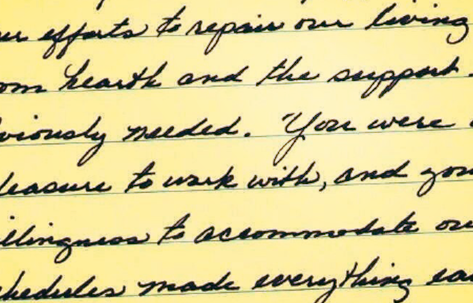 ur efforts to repair our living
om hearth and the support
viously needed. You were a
leasure to work with, and you
llingness to accommodate ou
chedules made everything eas